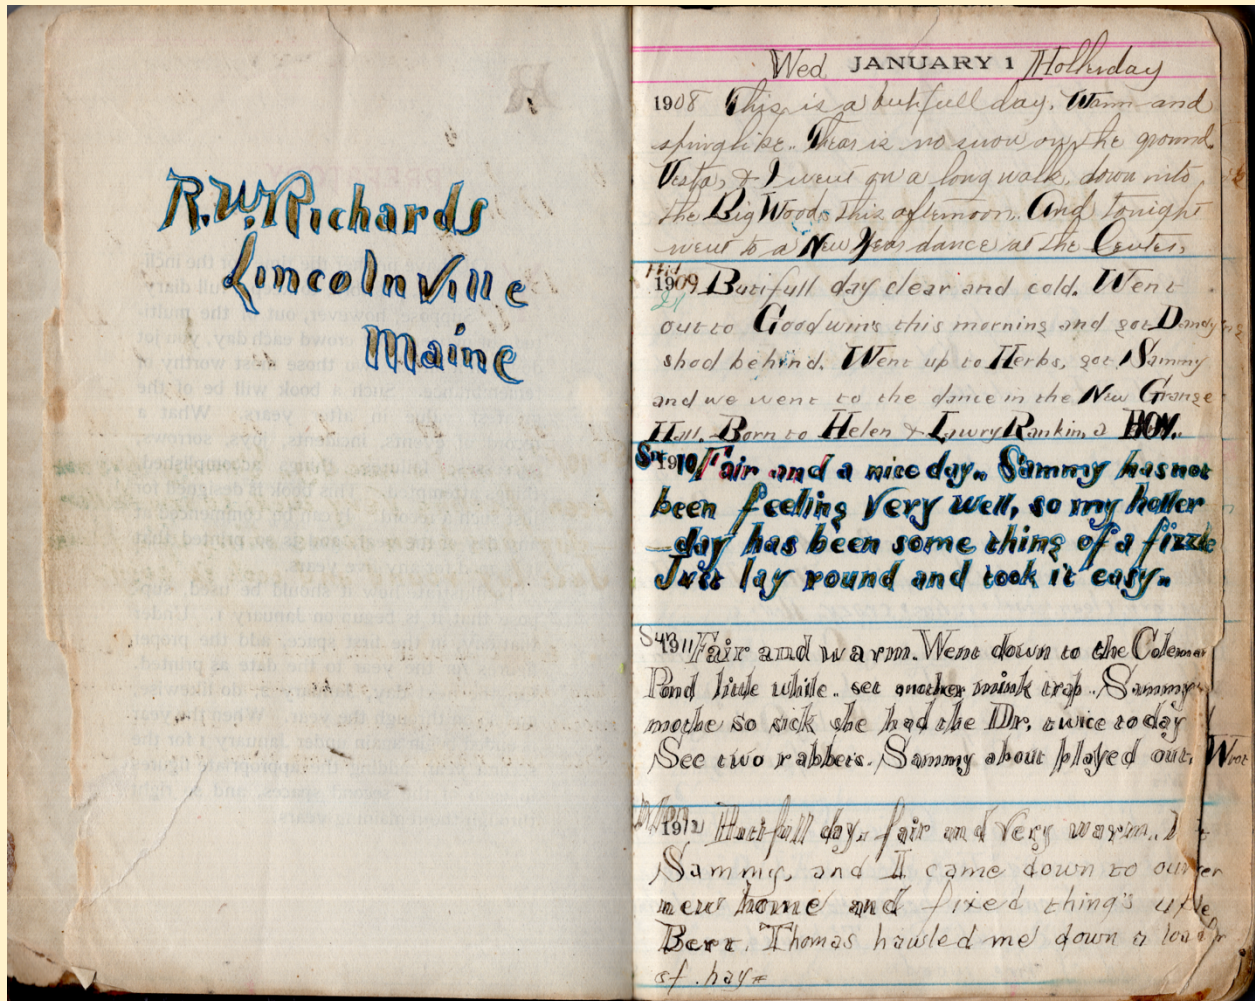 R.W. Richards
Lincolnville
Maine
Wed JANUARY 1 Holliday
1908 This is a butifull day. Warm and
springlike. Thear is no snow on the ground
Vesta, & I went on a long walk, down into
the Big Woods this afternoon. And tonight
went to a New Year dance at the Center.
1909 Butifull day clear and cold. Went
out to Goodwins this morning and got Dandy
shod behind. Went up to Herbs, got Sammy
and we went to the dance in the New Grange
Hall. Born to Helen & Lawry Rankin, a BOY.
Sat 1910 Fair and a nice day. Sammy has not
been feeling very well, so my holler
-day has been some thing of a fizzle
Just lay round and took it easy.
Sun 1911 Fair and warm. Went down to the Coleman
Pond little while. set another mink trap. Sammy
mothe so sick she had the Dr. twice today
See two rabbets. Sammy about played out. Wrot
1912 Butifull day. fair and very warm.
Sammy, and I came down to our
new home and fixed thing's up
Bert Thomas hawled me down a load
of hay